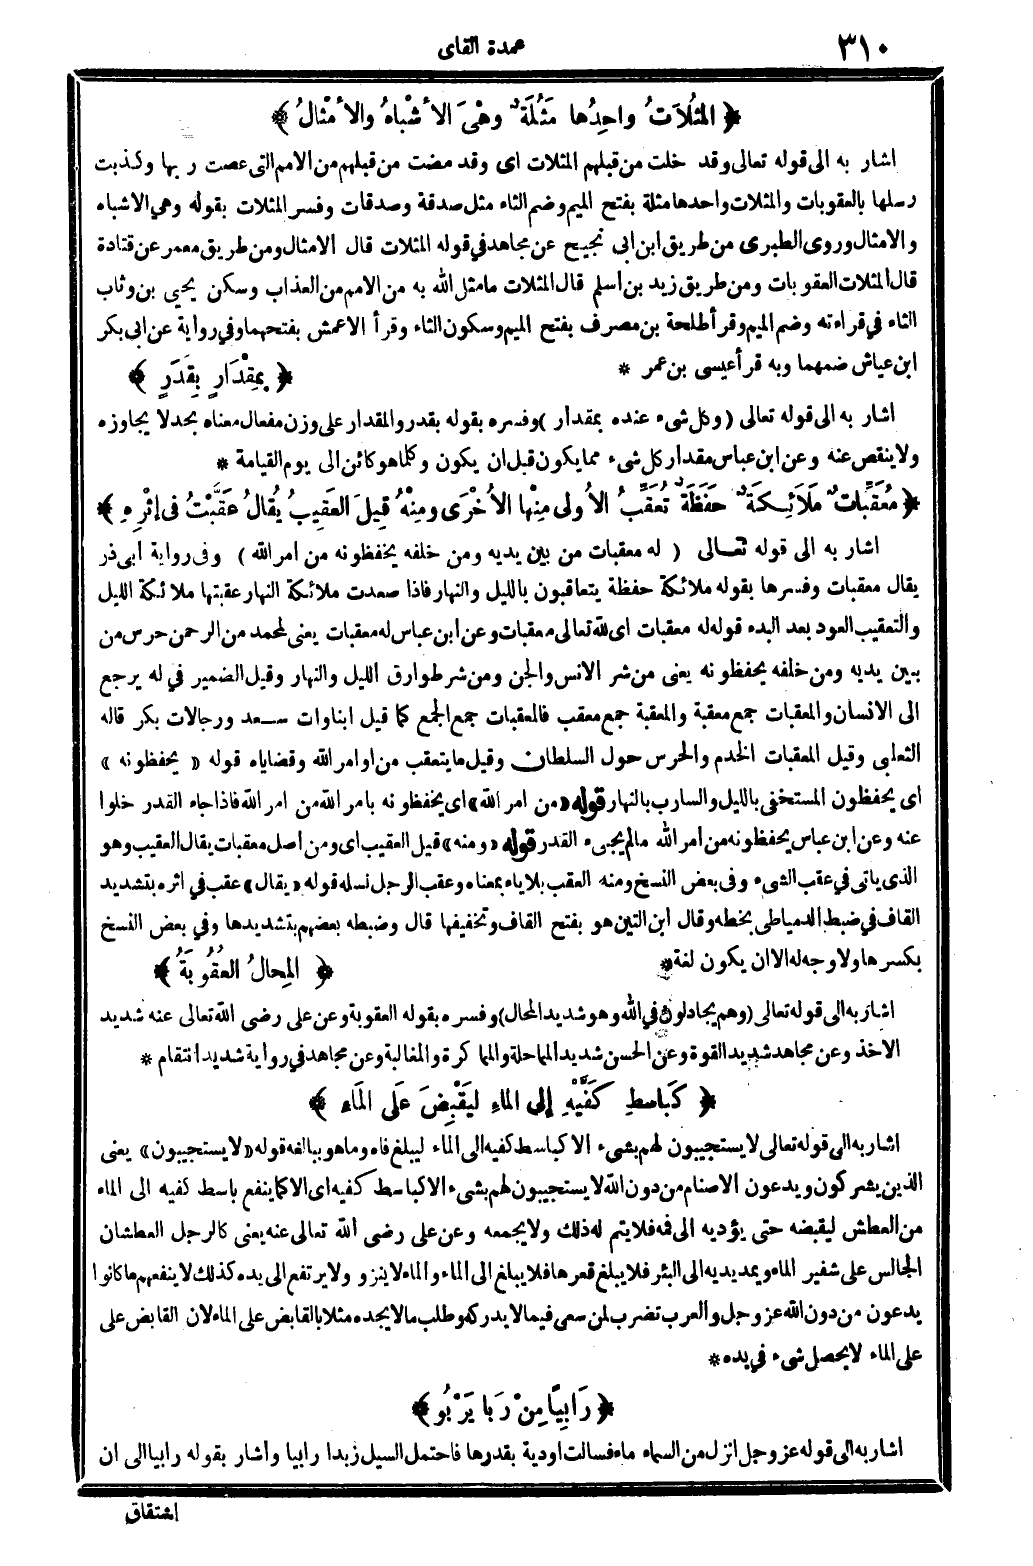 ٣١٠
عمدة القاى
﴿ المَثُلَاتُ واحِدُها مَثُلَةٌ وهْىَ الأشْباهُ والأمْثالُ ﴾
اشار به الى قوله تعالى وقد خلت من قبلهم المثلات اى وقد مضت من قبلهم من الامم التى عصت ربها وكذبت
رسلها بالعقوبات والمثلات واحدها مثلة بفتح الميم وضم الثاء مثل صدقة وصدقات وفسر المثلات بقوله وهي الاشباه
والامثال وروى الطبرى من طريق ابن ابى نجيح عن مجاهد في قوله المثلات قال الامثال ومن طريق معمر عن قتادة
قال المثلات العقوبات ومن طريق زيد بن أسلم قال المثلات ما مثل الله به من الامم من العذاب وسكن يحيى بن وثاب
الثاء في قراءته وضم الميم وقرأ طلحة بن مصرف بفتح الميم وسكون الثاء وقرأ الاعمش بفتحهما وفي رواية عن ابى بكر
ابن عياش ضمهما وبه قرأ عيسى بن عمر *
﴿ بِمِقْدَارٍ بِقَدَرٍ ﴾
اشار به الى قوله تعالى (وكل شىء عنده بمقدار) وفسره بقوله بقدر والمقدار على وزن مفعال معناه بحد لا يجاوزه
ولا ينقص عنه وعن ابن عباس مقدار كل شىء مما يكون قبل ان يكون وكلما هو كائن الى يوم القيامة *
﴿ مُعَقِّباتٌ مَلَائِكَةٌ حَفَظَةٌ تُعَقِّبُ الأُولى مِنْها الأُخْرَى ومِنْهُ قِيلَ العَقِيبُ يُقالُ عَقَّبْتُ فى إثْرِهِ ﴾
اشار به الى قوله تعالى ( له معقبات من بين يديه ومن خلفه يحفظونه من امر الله ) وفى رواية أبى ذر
يقال معقبات وفسرها بقوله ملائكة حفظة يتعاقبون بالليل والنهار فاذا صعدت ملائكة النهار عقبتها ملائكة الليل
والتعقيب العود بعد البدء قوله له معقبات اى لله تعالى معقبات وعن ابن عباس له معقبات يعنى لمحمد من الرحمن حرس من
بين يديه ومن خلفه يحفظونه يعنى من شر الانس والجن ومن شر طوارق الليل والنهار وقيل الضمير في له يرجع
الى الانسان والمعقبات جمع معقبة والمعقبة جمع معقب فالمعقبات جمع الجمع كما قيل ابناوات سعد ورجالات بكر قاله
الثعلبى وقيل المعقبات الخدم والحرس حول السلطان وقيل ما يتعقب من اوامر الله وقضاياه قوله « يحفظونه »
اى يحفظون المستخفى بالليل والسارب بالنهار قوله «من امر الله» اى يحفظونه بامر الله من امر الله فاذا جاء القدر خلوا
عنه وعن ابن عباس يحفظونه من أمر الله مالم يجىء القدر قوله «ومنه» قيل العقيب اى ومن اصل معقبات يقال العقيب وهو
الذى ياتى في عقب الشىء وفى بعض النسخ ومنه العقب بلا ياء بمعناه وعقب الرجل نسله قوله «يقال» عقب في اثره بتشديد
القاف في ضبط الدمياطى بخطه وقال ابن التين هو بفتح القاف وتخفيفها قال وضبطه بعضهم بتشديدها وفي بعض النسخ
بكسرها ولا وجه له الا ان يكون لغة *
﴿ المِحالُ العُقُوبَةُ ﴾
اشار به الى قوله تعالى (وهم يجادلون في الله وهو شديد المحال) وفسره بقوله العقوبة وعن على رضى الله تعالى عنه شديد
الاخذ وعن مجاهد شديد القوة وعن الحسن شديد المماحلة والمماكرة والمغالبة وعن مجاهد في رواية شديد انتقام *
﴿ كَباسطِ كَفَّيْهِ إلى الماءِ لِيَقْبِضَ عَلَى المَاءِ ﴾
اشار به الى قوله تعالى لا يستجيبون لهم بشىء الا كباسط كفيه الى الماء ليبلغ فاه وما هو ببالغه قوله «لا يستجيبون» يعنى
الذين يشركون ويدعون الاصنام من دون الله لا يستجيبون لهم بشىء الا كباسط كفيه اى الا كما ينفع باسط كفيه الى الماء
من العطش ليقبضه حتى يؤديه الى فمه فلا يتم له ذلك ولا يجمعه وعن على رضى الله تعالى عنه يعنى كالرجل العطشان
الجالس على شفير الماء ويمد يديه الى البئر فلا يبلغ قعرها فلا يبلغ الى الماء والماء لا ينزو ولا يرتفع الى يده كذلك لا ينفعهم ما كانوا
يدعون من دون الله عز وجل والعرب تضرب لمن سعى فيما لا يدركه وطلب مالا يجده مثلا بالقابض على الماء لان القابض على
على الماء لا يحصل شىء في يده *
﴿ رَابِيًا مِنْ رَبا يَرْبُو ﴾
اشار به الى قوله عز وجل انزل من السماء ماء فسالت اودية بقدرها فاحتمل السيل زبدا رابيا وأشار بقوله رابيا الى ان
اشتقاق